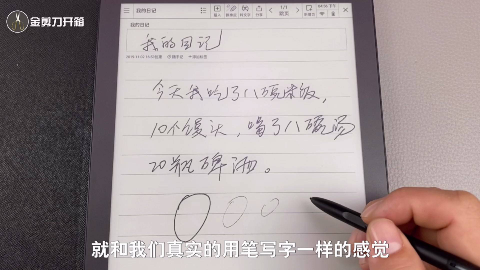 金剪刀开箱
我的日记
1/1
我的日记
我的日记
今天我吃了八碗米饭,
10个馒头,喝了八碗汤
20瓶啤酒。
就和我们真实的用笔写字一样的感觉